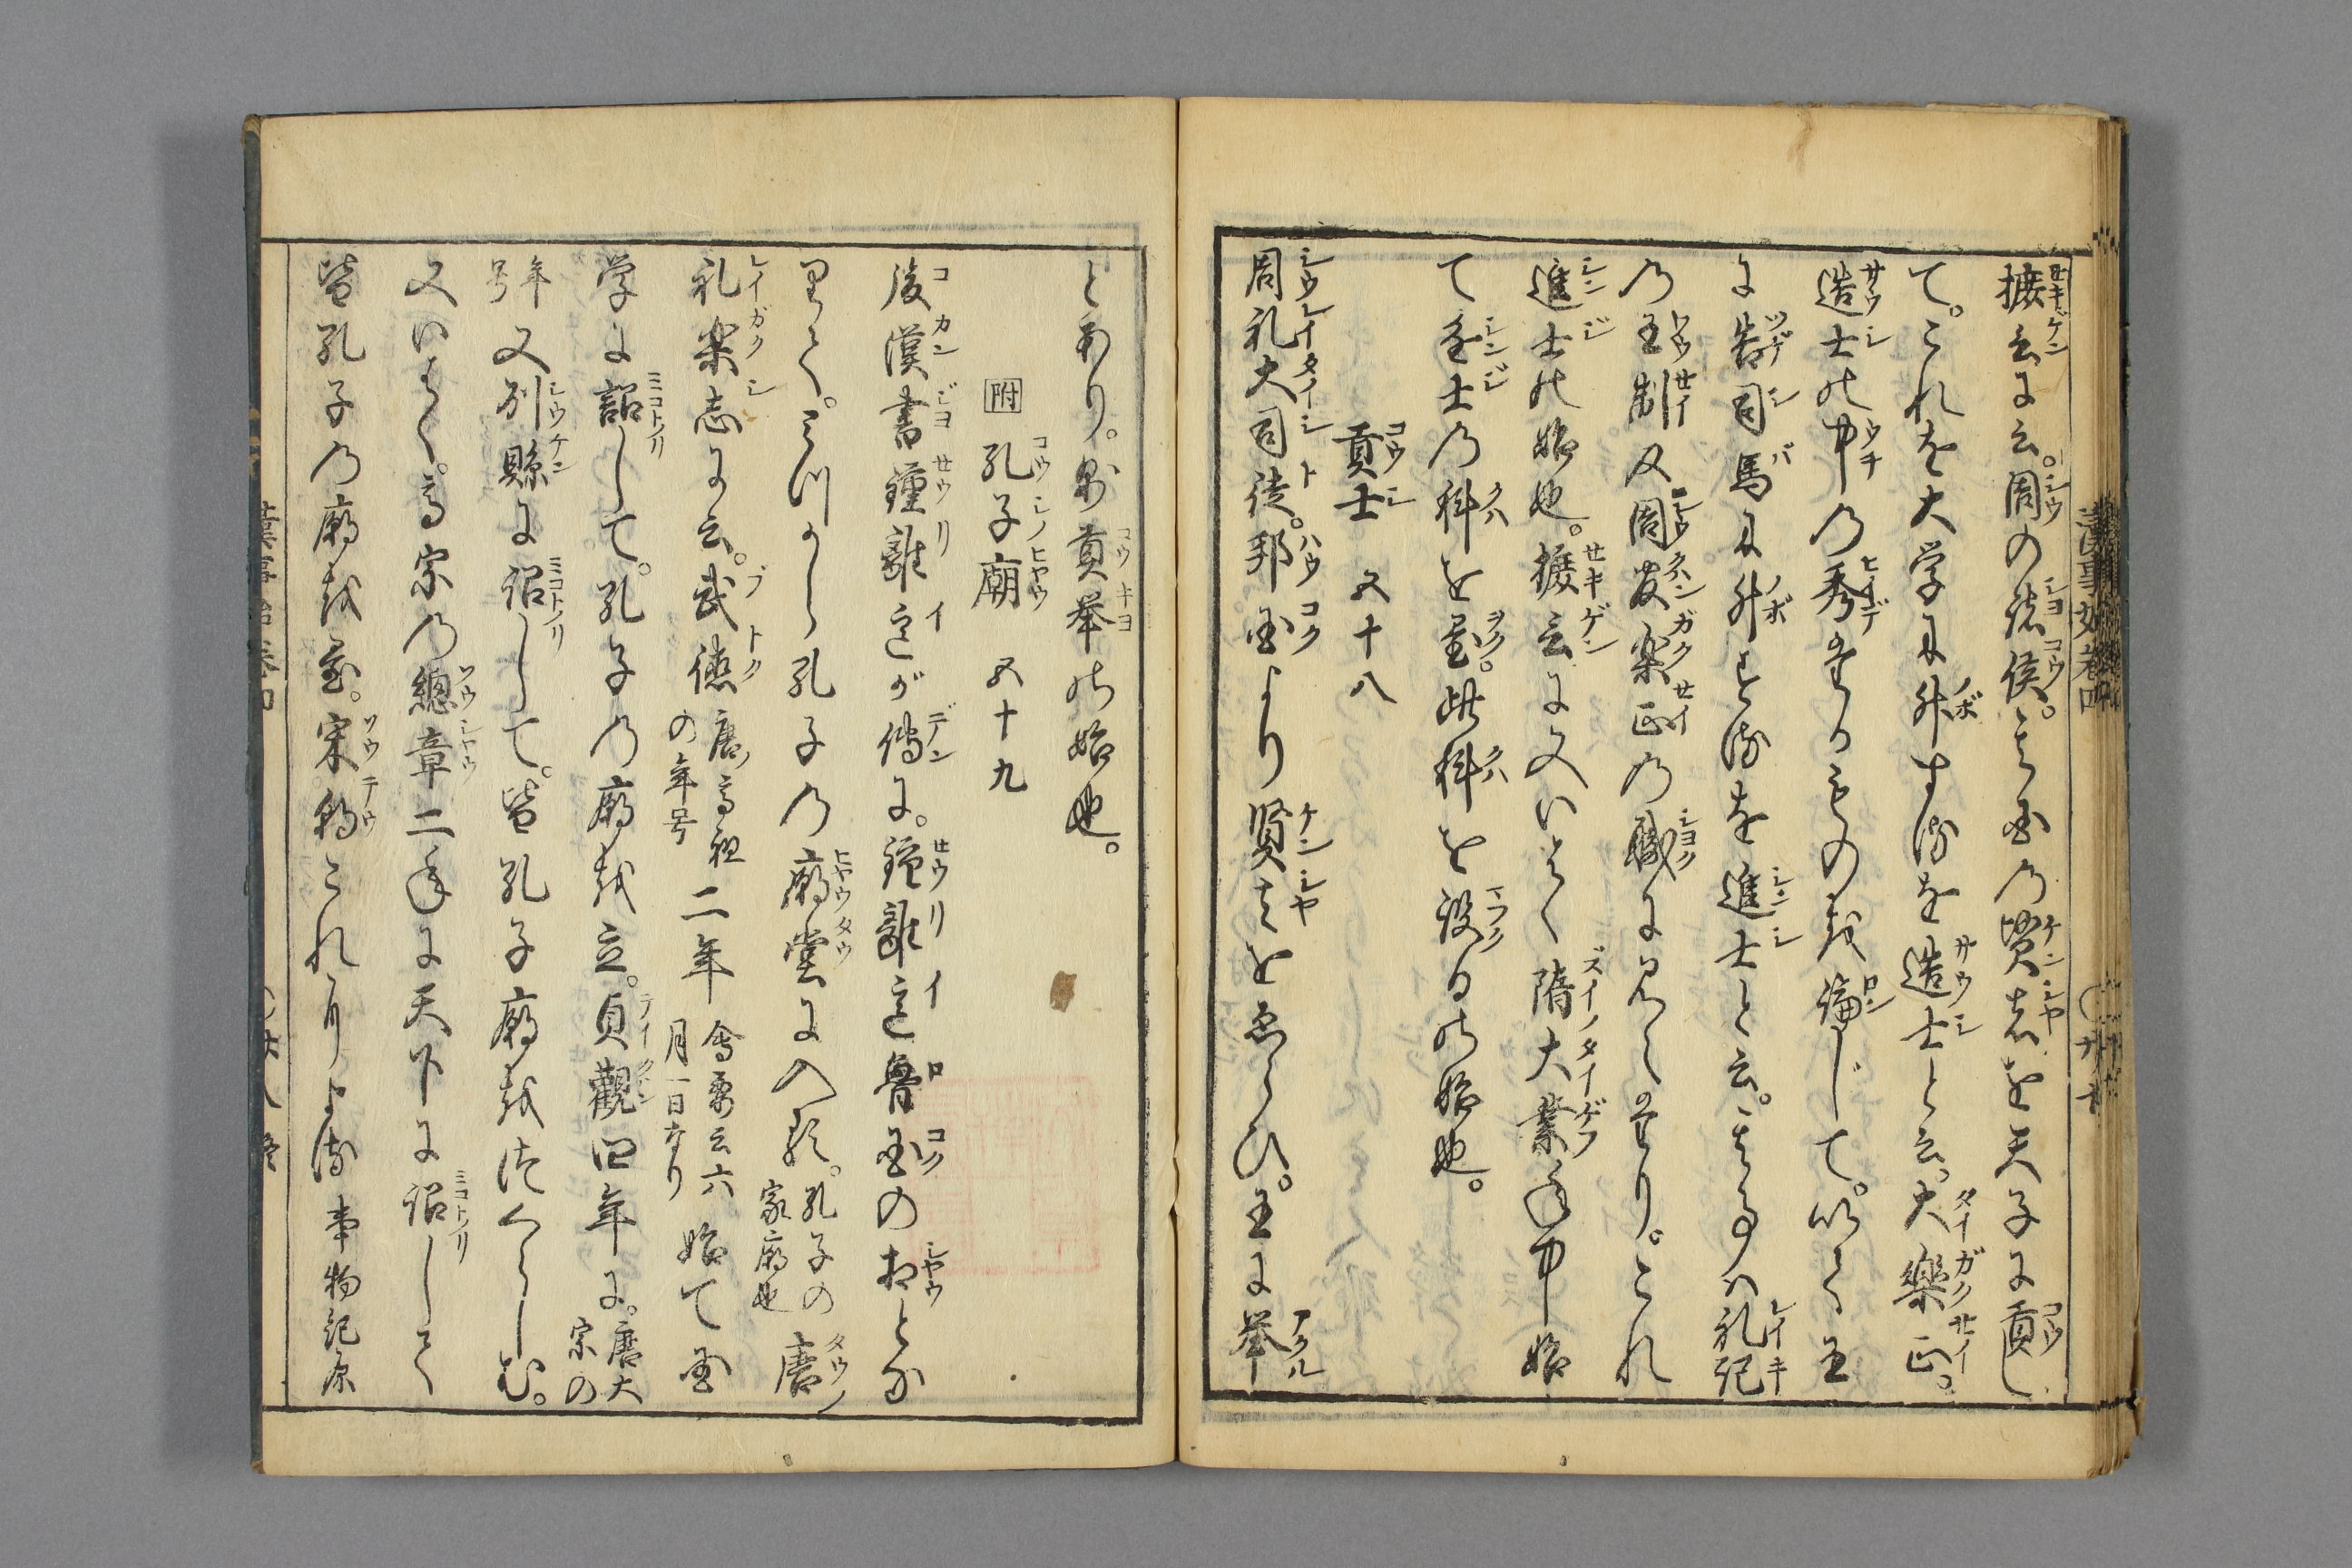 摭言に云。周の諸侯。其国の賢者を天子に貢し
て。これを大学に升するを造士と云。大楽正。
造士の中の秀たるものを論じて。以て王
に告司馬に升するを進士と云。其事ハ礼記
の王制又周官楽正の職に見えたり。これ
進士の始也。摭言に又いはく隋大業年中始
て進士の科を置。此科を設るの始也。
貢士 五十八
周礼大司徒。邦国より賢者をゑらひ。王に挙
とあり。則貢挙の始也。
附 孔子廟 五十九
後漢書鍾離意が傳に。鍾離意魯国の相とな
りて。みつから孔子の廟堂に入る。孔子の家廟也 唐
礼楽志に云。武徳唐高祖の年号二年会要云六月一日なり始て国
学に詔して。孔子の廟を立。貞観四年に。唐太宗の
年号又州縣に詔して。皆孔子廟をつくらしむ。
又いはく。高宗の總章二年に天下に詔して
皆孔子の廟を置。宋朝これによる事物紀原
漢事始巻四